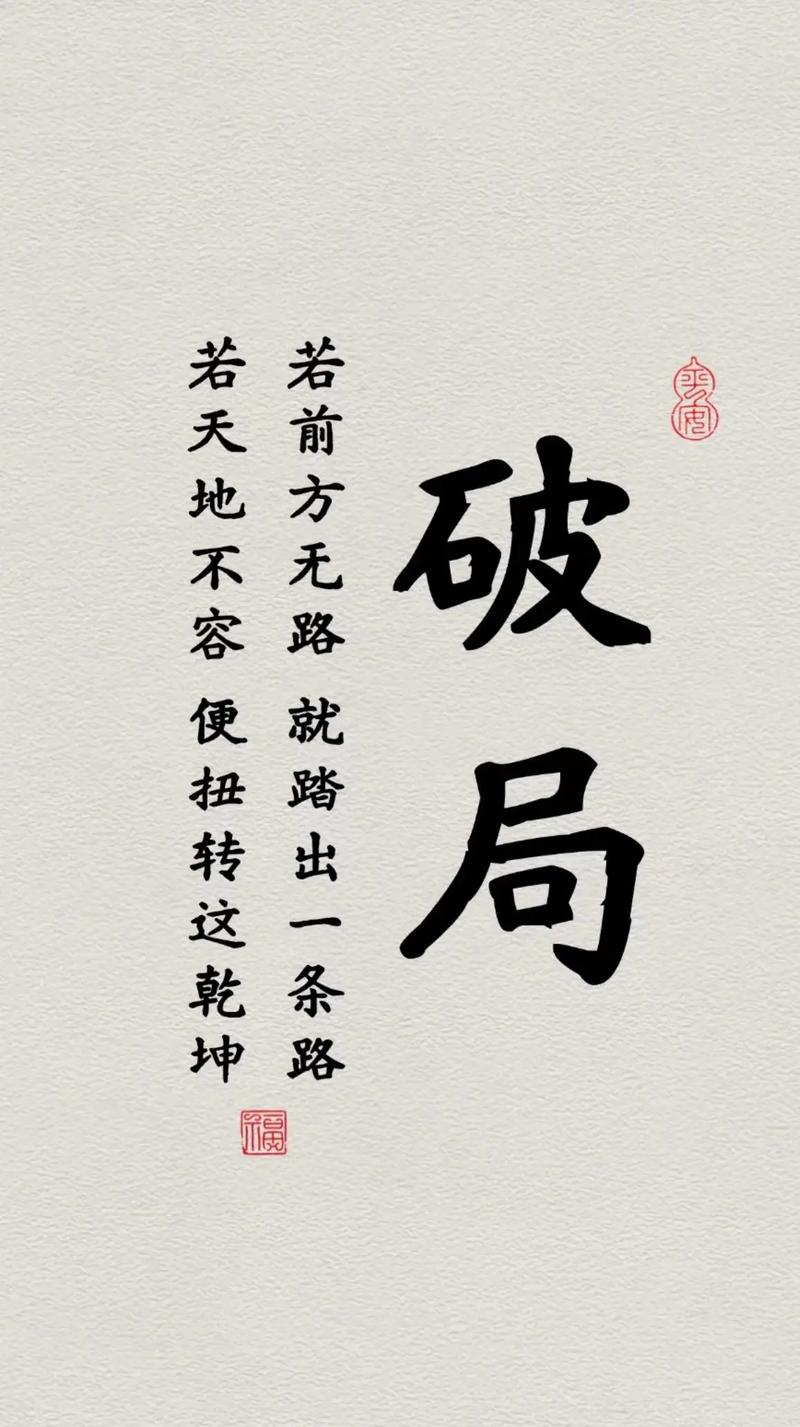 平安
破局
若前方无路 就踏出一条路
若天地不容 便扭转这乾坤
福